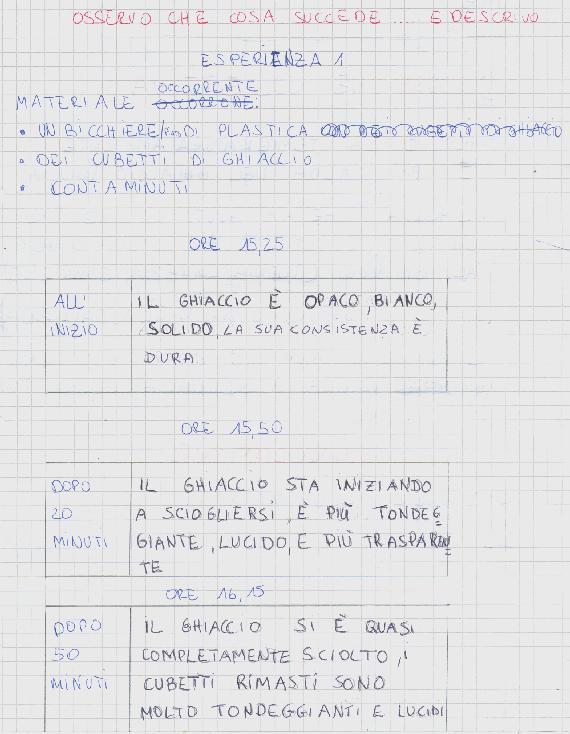 OSSERVO CHE COSA SUCCEDE ... E DESCRIVO
ESPERIENZA 1
OCCORRENTE
MATERIALE OCCORRONE:
• UN BICCHIERE DI PLASTICA
• DEI CUBETTI DI GHIACCIO
• CONTAMINUTI
ORE 15,25
ALL'
INIZIO
IL GHIACCIO È OPACO, BIANCO,
SOLIDO, LA SUA CONSISTENZA È
DURA
ORE 15,50
DOPO
20
MINUTI
IL GHIACCIO STA INIZIANDO
A SCIOGLIERSI, È PIÙ TONDEG
GIANTE, LUCIDO, E PIÙ TRASPAREN
TE
ORE 16,15
DOPO
50
MINUTI
IL GHIACCIO SI È QUASI
COMPLETAMENTE SCIOLTO, I
CUBETTI RIMASTI SONO
MOLTO TONDEGGIANTI E LUCIDI